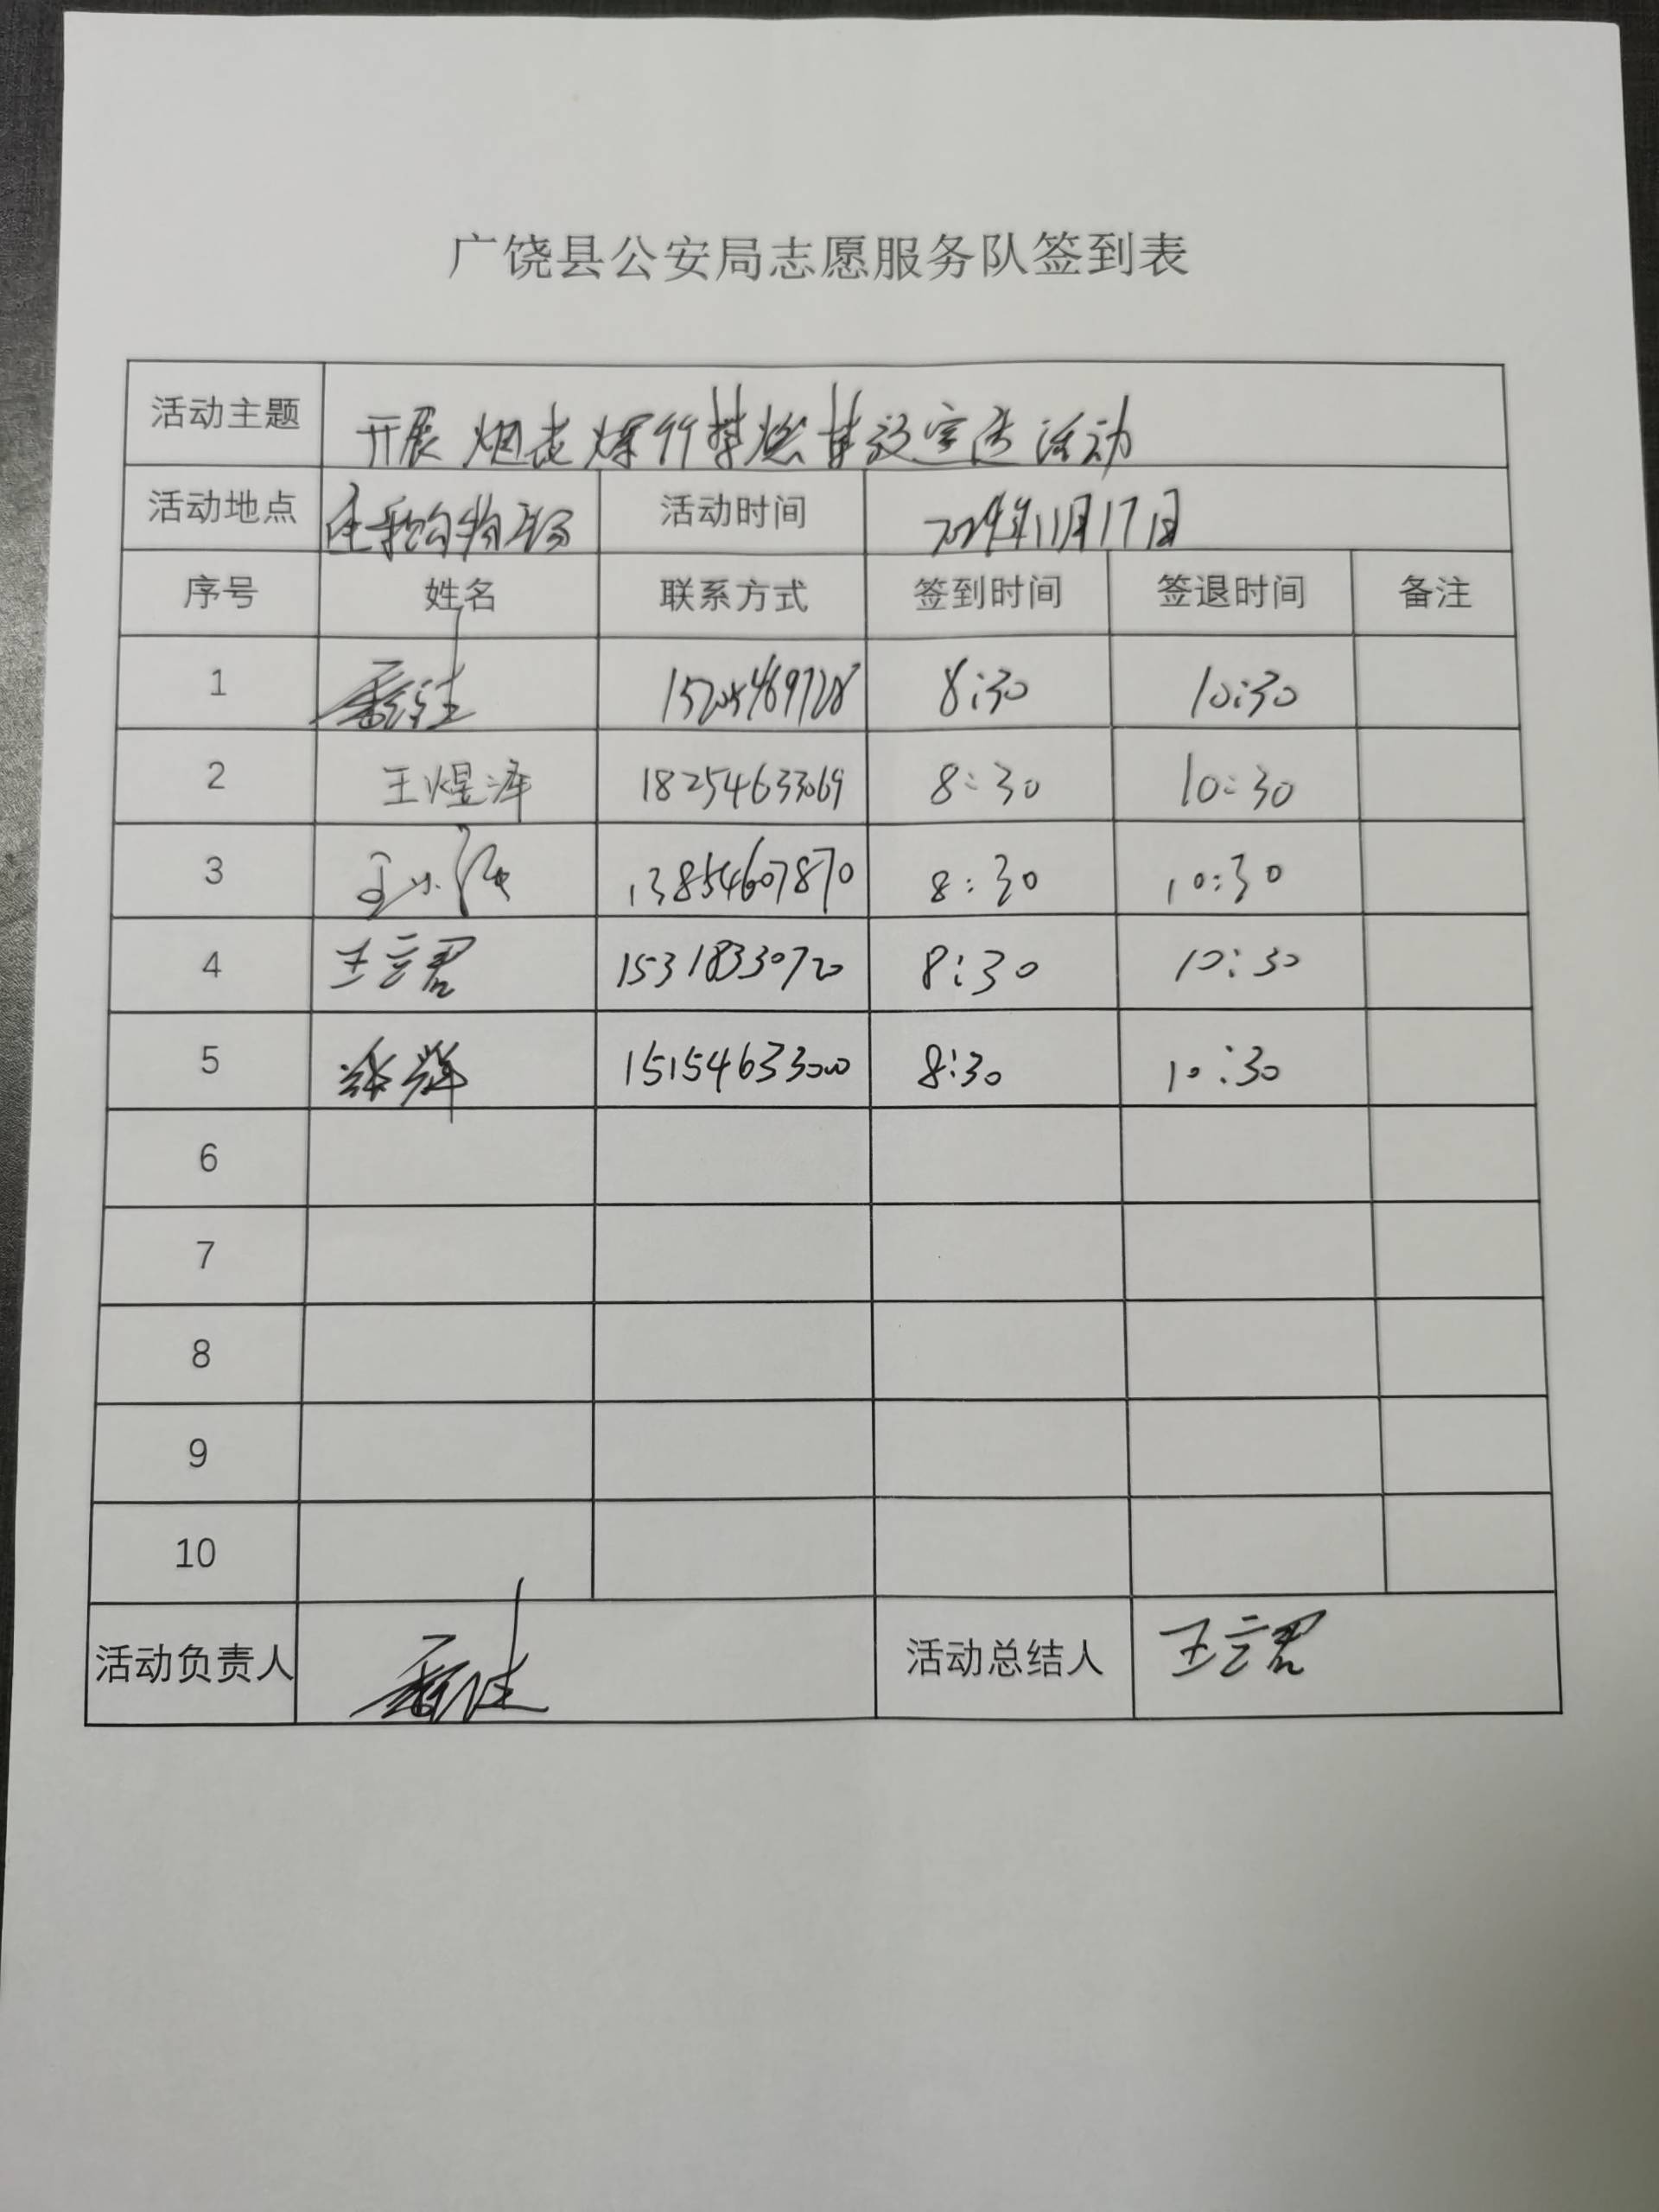 广饶县公安局志愿服务队签到表
活动主题 开展烟花爆竹禁燃禁放宣传活动
活动地点 购物 活动时间 2024年11月17日
序号 姓名 联系方式 签到时间 签退时间 备注
1 8:30 10:30
2 王煜泽 18254633069 8:30 10:30
3 13854607870 8:30 10:30
4 王言君 15318330720 8:30 10:30
5 徐辉 15154633000 8:30 10:30
6
7
8
9
10
活动负责人 活动总结人 王言君